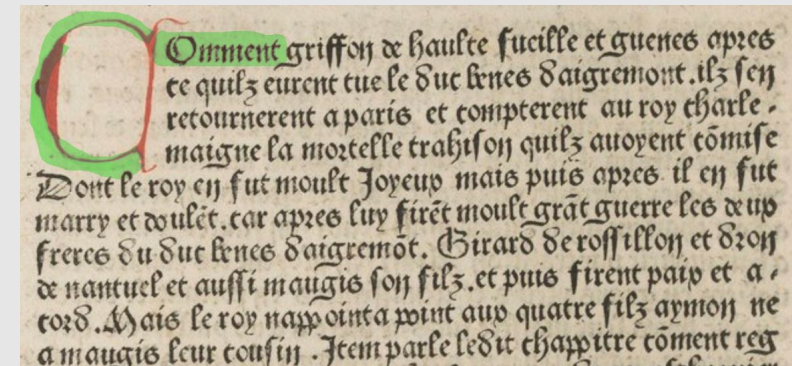 Comment griffon de haulte fueille et guenes apres
ce quilz eurent tue le duc benes daigremont.ilz sen
retournerent a paris et compterent au roy charle-
maigne la mortelle trahison quilz avoyent cõmise
Dont le roy en fut moult Joyeux mais puis apres il en fut
marry et doulẽt.car apres luy firẽt moult grãt guerre les deux
freres du duc benes daigremõt. Girard de rossillon et dron
de nantuel et aussi maugis son filz.et puis firent paix et a-
cord.Mais le roy nappointa point aux quatre filz aymon ne
a maugis leur cousin.Item parle ledit chappitre cõment reg